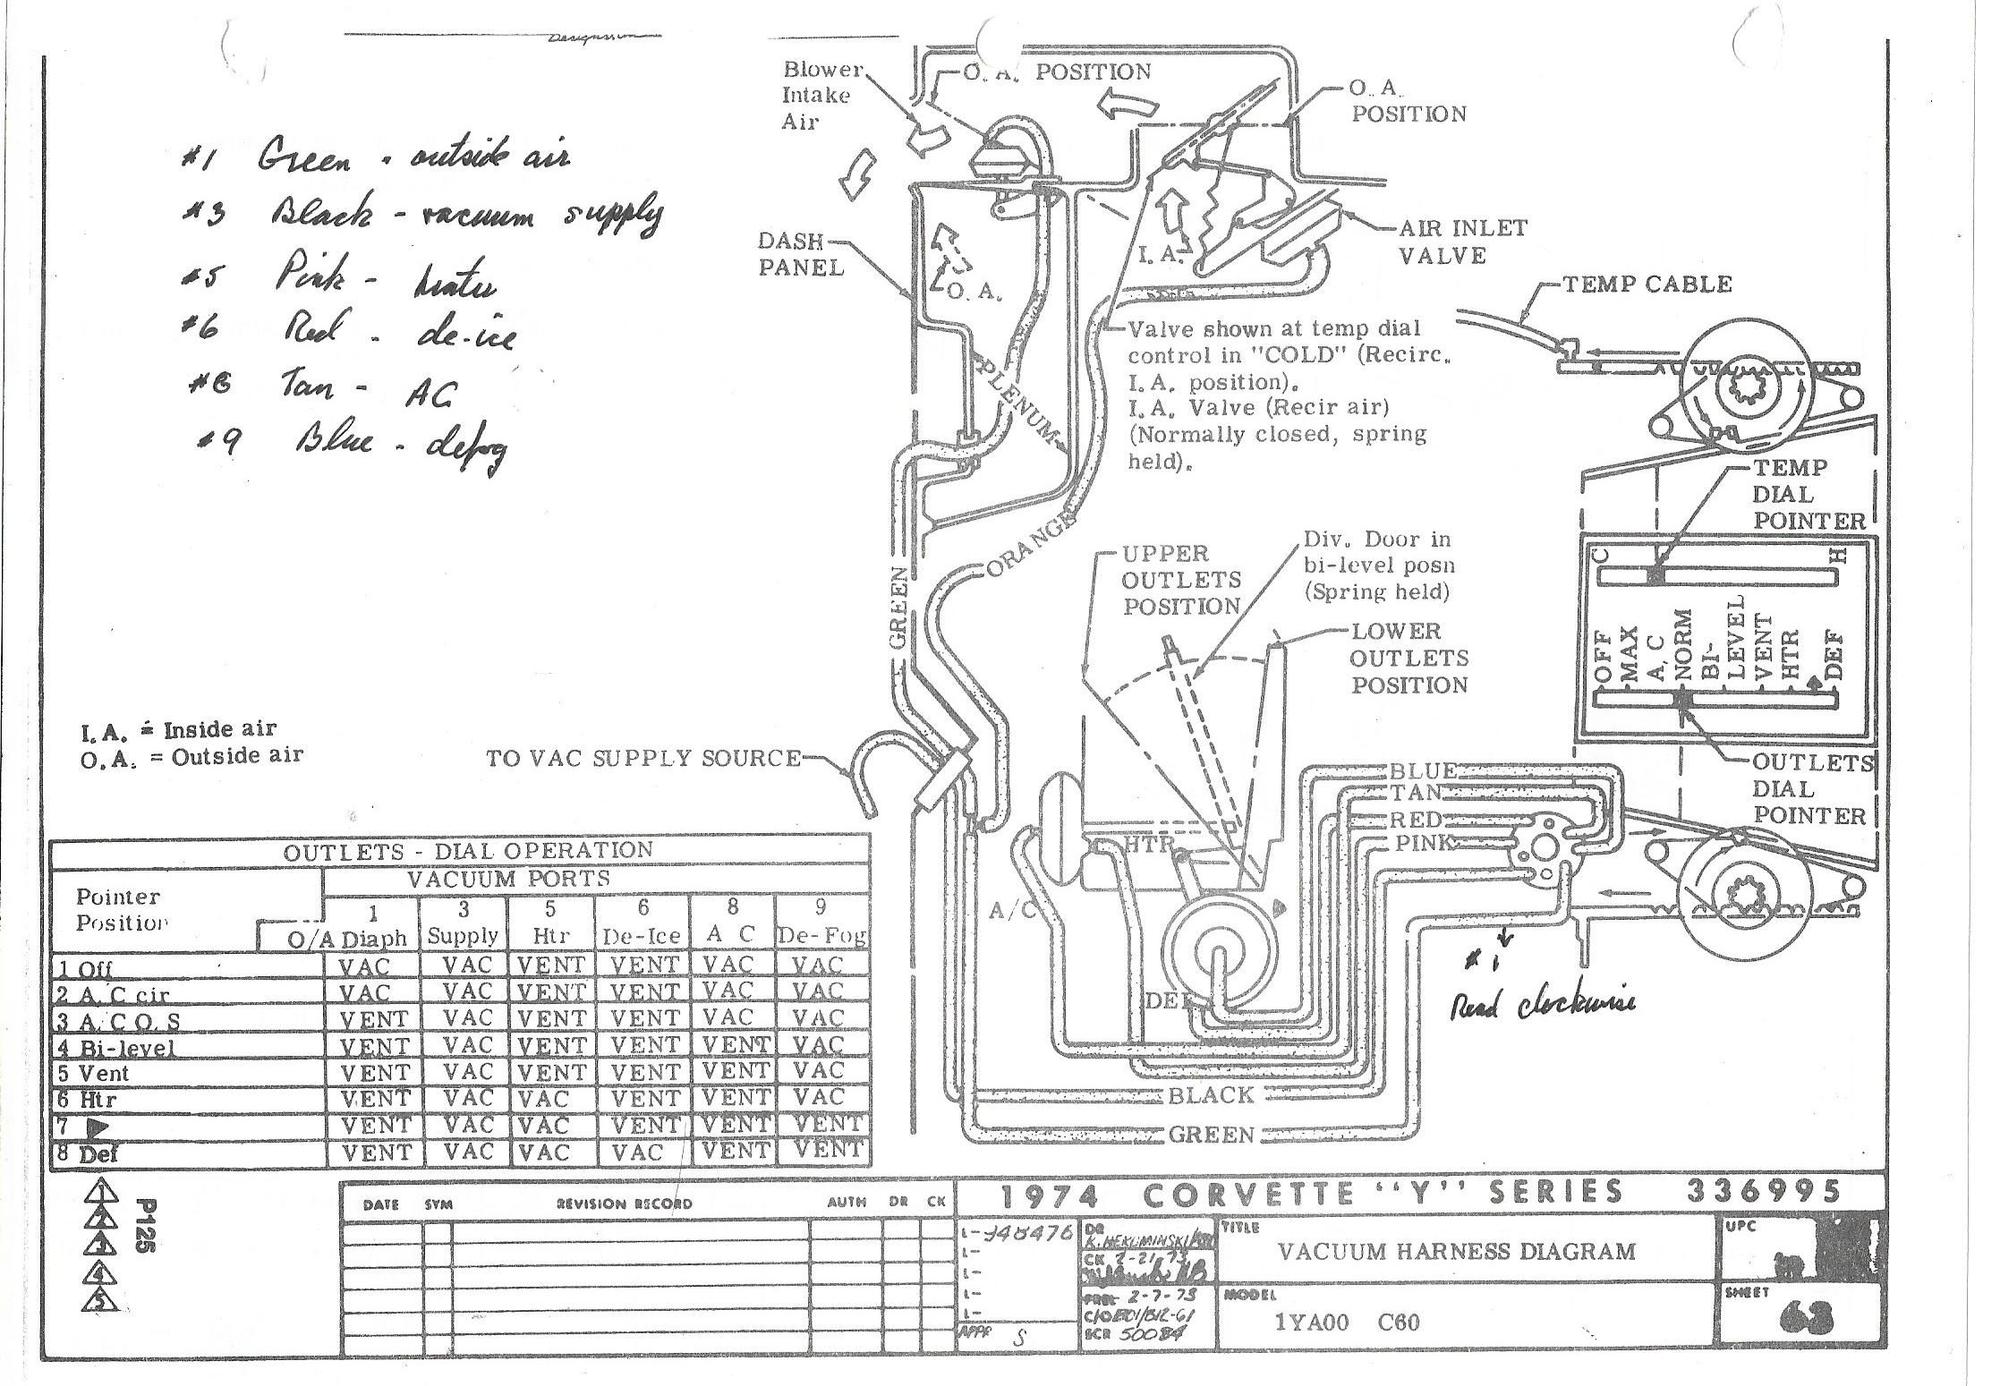 Designation
Blower
Intake
Air
O. A. POSITION
O. A.
POSITION
#1 Green - outside air
#3 Black - vacuum supply
#5 Pink - heater
#6 Red - de-ice
#8 Tan - AC
#9 Blue - defog
DASH
PANEL
O. A.
I. A.
AIR INLET
VALVE
TEMP CABLE
Valve shown at temp dial
control in "COLD" (Recirc.
I. A. position).
I. A. Valve (Recir air)
(Normally closed, spring
held).
PLENUM
ORANGE
GREEN
TEMP
DIAL
POINTER
UPPER
OUTLETS
POSITION
Div. Door in
bi-level posn
(Spring held)
LOWER
OUTLETS
POSITION
C
H
OFF
MAX
A, C
NORM
BI-
LEVEL
VENT
HTR
DEF
OUTLETS
DIAL
POINTER
I. A. = Inside air
O. A. = Outside air
TO VAC SUPPLY SOURCE
BLUE
TAN
RED
PINK
HTR
A/C
DEF
BLACK
GREEN
#1
Read clockwise
OUTLETS - DIAL OPERATION
Pointer
Position
VACUUM PORTS
1 3 5 6 8 9
O/A Diaph Supply Htr De-Ice A C De-Fog
1 Off VAC VAC VENT VENT VAC VAC
2 A. C cir VAC VAC VENT VENT VAC VAC
3 A. C O. S VENT VAC VENT VENT VAC VAC
4 Bi-level VENT VAC VENT VENT VENT VAC
5 Vent VENT VAC VENT VENT VENT VAC
6 Htr VENT VAC VAC VENT VENT VAC
7 VENT VAC VAC VENT VENT VENT
8 Def VENT VAC VAC VAC VENT VENT
1
2
3
4
5
P125
DATE SYM REVISION RECORD AUTH DR CK
1974 CORVETTE "Y" SERIES 336995
L-348476
L-
L-
L-
L-
APPR S
DR
CK 2-21-73
2-7-73
50084
TITLE
VACUUM HARNESS DIAGRAM
MODEL
1YA00 C60
UPC
SHEET
63